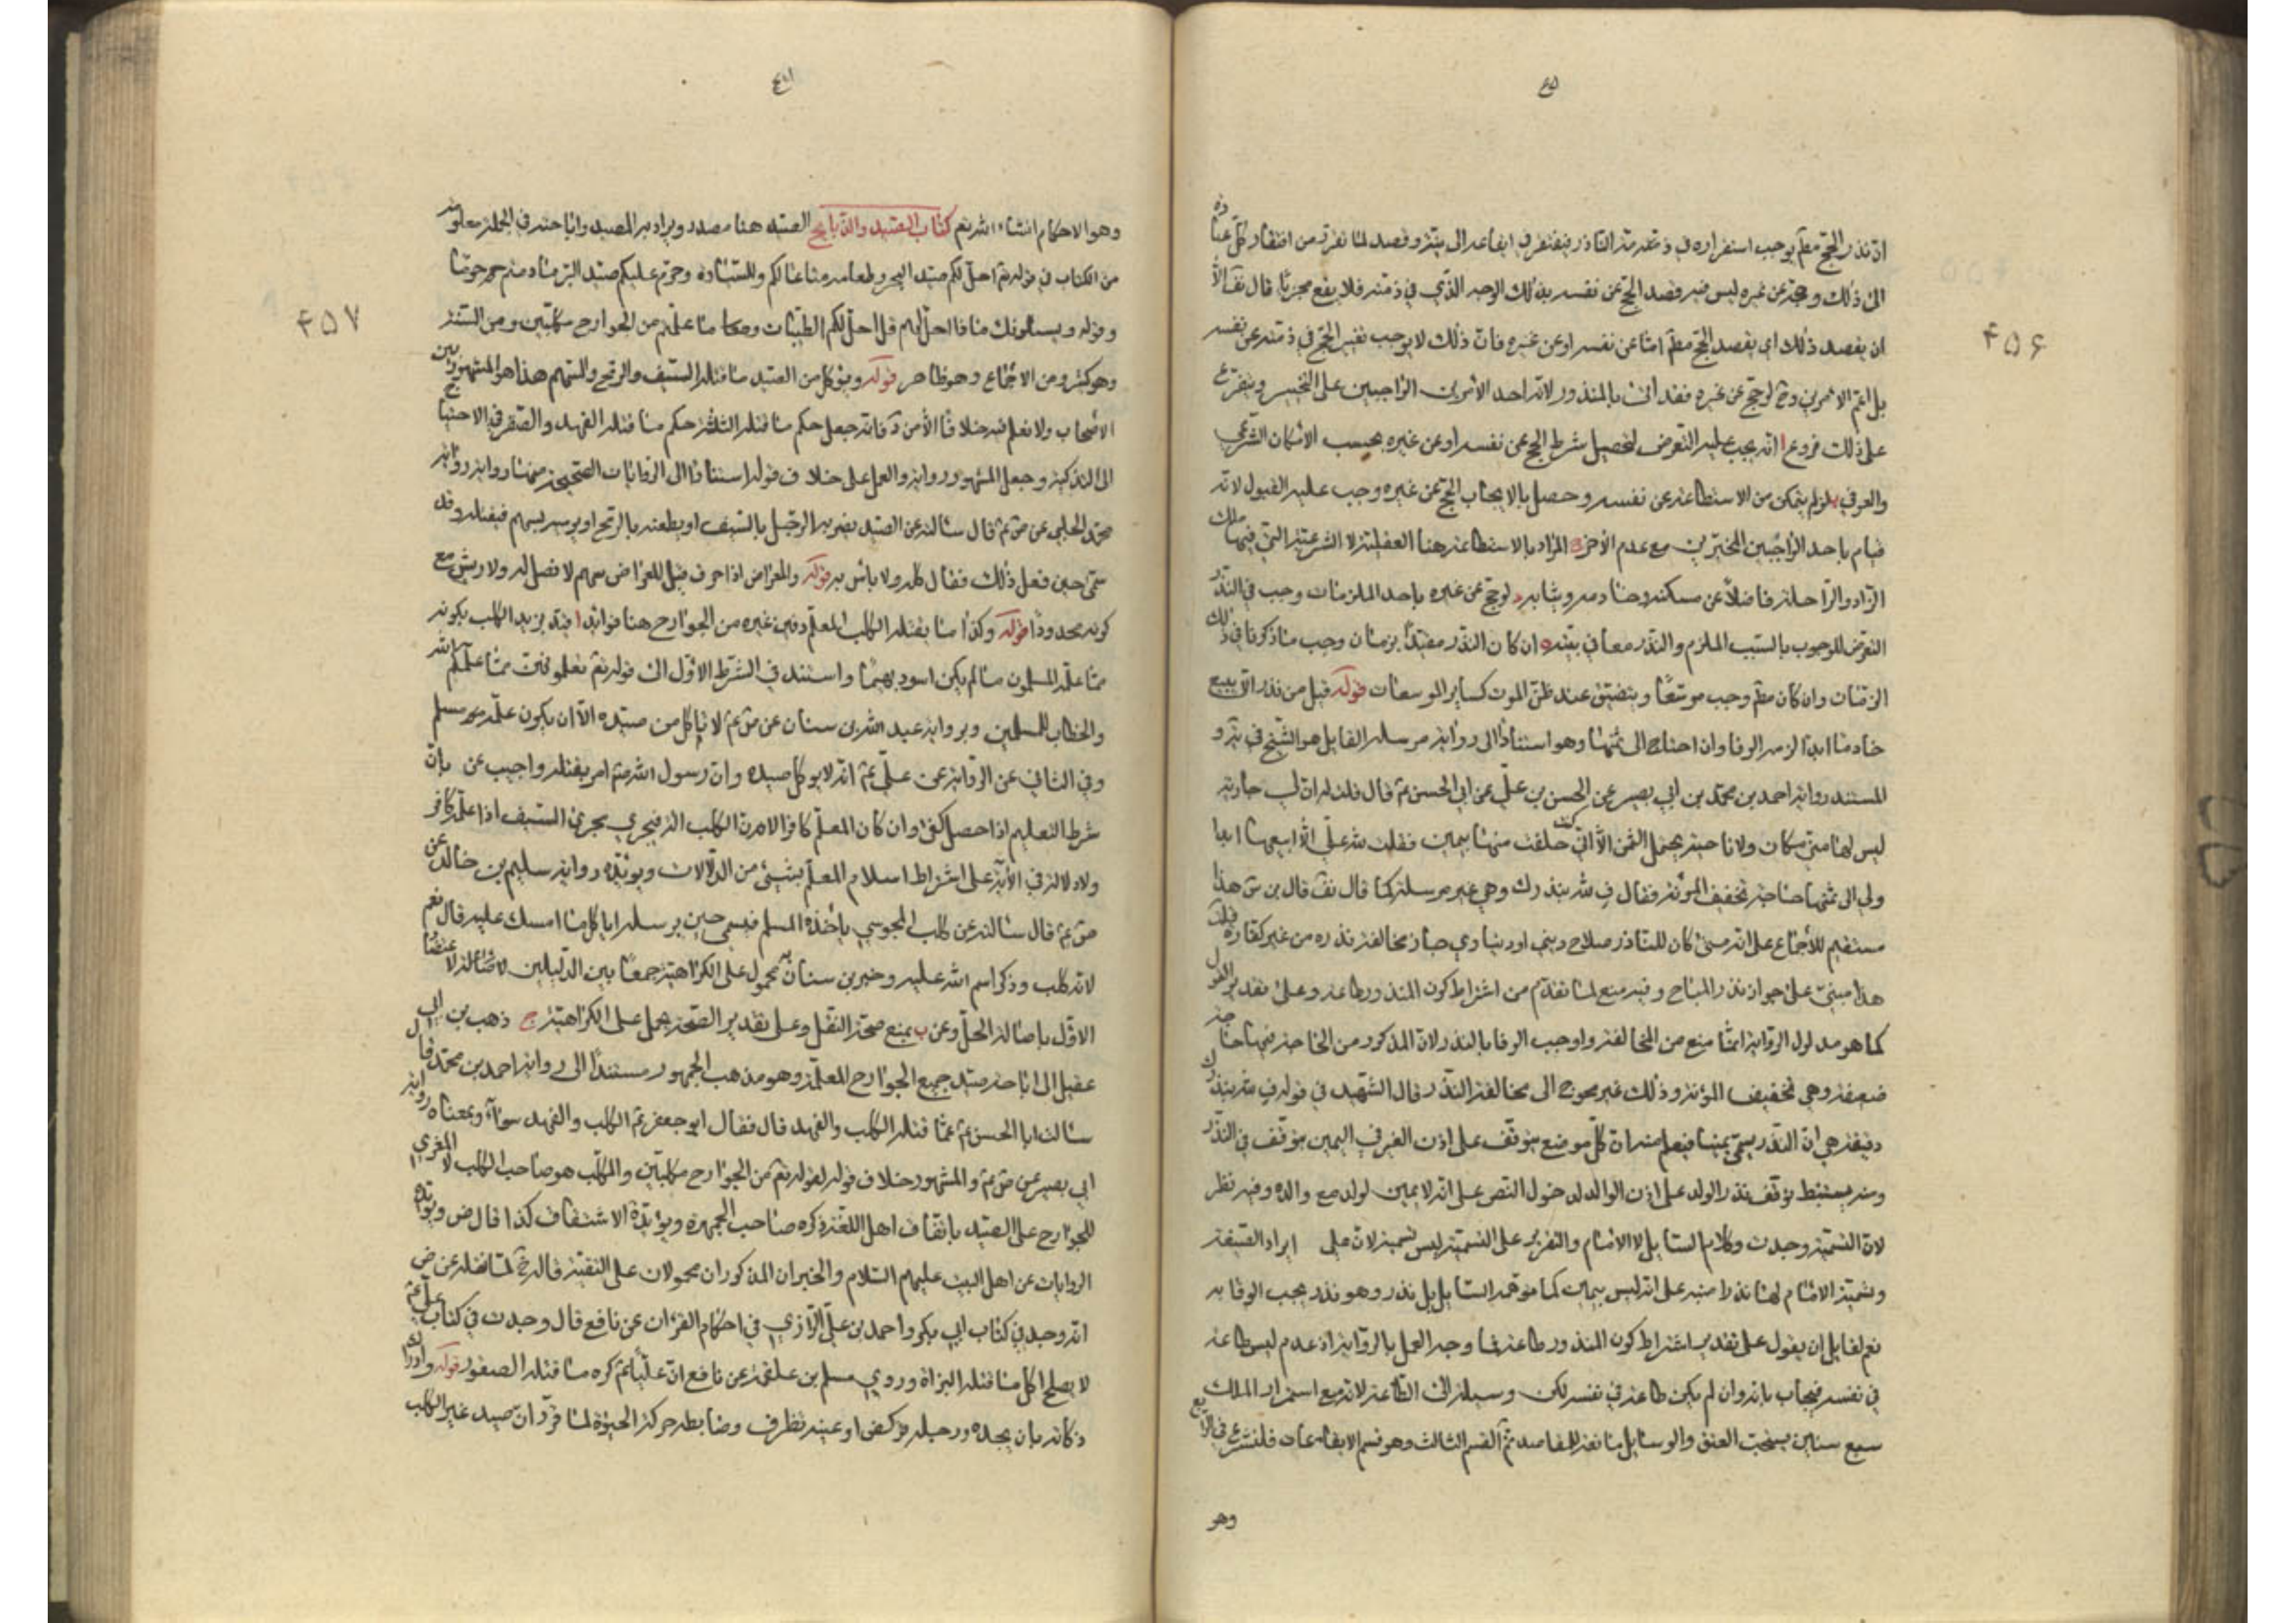 ۴۵۶
ان نذر الحج مطم يوجب استقراره في ذمته الناذر فيفتقر في ايقاعه الى نيته وقصد لما تقرر من افتقار كل عبادة
الى ذلك وحجه عن غيره ليس فيه قصد الحج عن نفسه بذلك الوجه الذي في ذمته فلا يقع مجزيا قال الا
ان يقصد ذلك اي يقصد الحج مطم امّا عن نفسه او عن غيره فان ذلك لا يوجب تغير الحج في ذمته عن نفسه
بل اعم الامرين وح لو حج عن غيره فقد اتى بالمنذور لانه احد الامرين الواجبين على التخيير ويتفرع
على ذلك فروع ا انه يجب عليه التعرض لتحصيل شرط الحج عن نفسه او عن غيره بحسب الامكان الشرعي
والعرفي ب لو لم يتمكن من الاستطاعة عن نفسه وحصل بالايجاب الحج عن غيره وجب عليه القبول لانه
قيام باحد الواجبين المخيرين مع عدم الاخر ج المراد بالاستطاعة هنا العقلية لا الشرعية التي فيها ملك
الزاد والراحلة فاضلا عن مسكنه وخادمه وثيابه د لو حج عن غيره باحد الملزمات وجب في النذر
التعرض للوجوب بالسبب الملزم والنذر معا في نيته ه ان كان النذر مقيدا بزمان وجب ما ذكرنا في ذلك
الزمان وان كان مطم وجب موسعا ويتضيق عند ظن الموت كساير الموسعات قوله قيل من نذر الا يبيع
خادما ابدا لزمه الوفا وان احتاج الى ثمنها وهو استنادا الى رواية مرسلة القايل هو الشيخ في يه و
المستند رواية احمد بن محمد بن ابي بصير عن الحسن بن علي عن ابي الحسن ع قال قلت له ان لي جارية
ليس لها مني مكان ولا ناحية يحتمل الثمن الا اني كنت حلفت منها بيمين فقلت لله علي الا ابيعها ابدا
ولي الى ثمنها حاجة تخفيف المؤنة فقال ف لله بنذرك وهي غير مرسلة كما قال قال بن س هذا
مستقيم للاجماع على انه متى كان للناذر صلاح ديني او دنياوي جاز مخالفة نذره من غير كفارة قلت
هذا مبني على جواز نذر المباح وفيه منع لما تقدم من اشتراط كون المنذور طاعة وعلى تقدير القول
كما هو مدلول الرواية انما منع من المخالفة واوجب الوفا بالنذر لان المذكور من الحاجة فيها حاجة
ضعيفة وهي تخفيف المؤنة وذلك غير محوج الى مخالفة النذر قال الشهيد في قوله ف لله بنذرك
دقيقة هي ان النذر يسمى يمينا فيعلم منه ان كل موضع يتوقف على اذن الغير في اليمين يتوقف في النذر
ومنه يستنبط توقف نذر الولد على اذن الوالد لدخول النص على انه لا يمين لولد مع والده وفيه نظر
لان التسمية وجدت وكلام السايل لا الامام والتقرير على التسمية ليس تسمية لان علي ايراد الصيغة
وتسمية الامام لها نذرا منبه على انه ليس بيمين كما توهمه السايل بل نذر وهو نذر يجب الوفا به
نعم لقايل ان يقول على تقدير اشتراط كون المنذور طاعة فما وجه العمل بالرواية اذ عدم ليس طاعة
في نفسه فيجاب بانه وان لم يكن طاعة في نفسه لكن وسيلة الى الطاعة لانه مع استمرار الملك
سبع سنين يستحب العتق والوسايل تابعة للمقاصد تم القسم الثالث وهو قسم الايقاعات فلنشرع في الرابع
وهو
۴۵۷
وهو الاحكام انشاء الله تعم كتاب الصيد والذبايح الصيد هنا مصدر ويراد به المصيد واباحته في الجملة معلومة
من الكتاب في قوله تعم احل لكم صيد البحر وطعامه متاعا لكم وللسيارة وحرم عليكم صيد البر ما دمتم حرما
وقوله ويسئلونك ماذا احل لهم قل احل لكم الطيبات وما علمتم من الجوارح مكلبين ومن السنة
وهو كثير ومن الاجماع وهو ظاهر قوله ويؤكل من الصيد ما قتله السيف والرمح والسهم هذا هو المشهور بين
الاصحاب ولا نعلم فيه خلافا الا من د فانه جعل حكم ما قتله الثلثة حكم ما قتله الفهد والصقر في الاحتياج
الى التذكية وجعل المشهور رواية والعمل على خلاف قوله استنادا الى الروايات الصحيحة منها رواية
محمد الحلبي عن ص ع قال سئالته عن الصيد يضربه الرجل بالسيف او يطعنه بالرمح او يرميه بسهم فيقتله وقد
سمى حين فعل ذلك فقال كله ولا باس به قوله والمعراض اذا خرق قيل المعراض سهم لا فصل له ولا ريش مع
كونه محدودا قوله وكذا ما يقتله الكلب المعلم دون غيره من الجوارح هنا فوايد ا قيد بن يد الكلب بكونه
مما علمه المسلمون ما لم يكن اسود بهيما واستند في الشرط الاول الى قوله تعم تعلمونهن مما علمكم الله
والخطاب للمسلمين وبرواية عبد الله بن سنان عن ص ع لا تاكل من صيده الا ان يكون علمه مسلم
وفي الثاني عن الرواية عن علي ع انه لا يوكل صيده وان رسول الله ص امر بقتله واجيب عن بان
شرط التعليم اذا حصل كفى وان كان المعلم كافرا لان الكلب آلة فيجري مجرى السيف اذا علمه كافر
ولا دلالة في الاية على اشتراط اسلام المعلم بشيء من الدلالات ويؤيده رواية سليم بن خالد عن
ص ع قال سئالته عن كلب المجوسي ياخذه المسلم فيسمى حين يرسله اياكل مما امسك عليه قال نعم
لانه كلب وذكر اسم الله عليه وخبر بن سنان محمول على الكراهية جمعا بين الدليلين لاصالة لاعتضاد
الاول باصالة الحل وعن ب بمنع صحة النقل وعلى تقدير الصحة يحمل على الكراهية ج ذهب بن ابي
عقيل الى اباحة صيد جميع الجوارح المعلمة وهو مذهب الجمهور مستندا الى رواية احمد بن محمد قال
سئالت ابا الحسن ع عما قتله الكلب والفهد قال فقال ابو جعفر ع الكلب والفهد سواء وبمعناه رواية
ابي بصير عن ص ع والمشهور خلاف قوله لقوله تعم من الجوارح مكلبين والمكلب هو صاحب الكلب لا المغري
للجوارح على الصيد باتفاق اهل اللغة ذكره صاحب الجمهرة ويؤيده الاشتقاق كذا قال ض ويؤيده
الروايات عن اهل البيت عليهم السلام والخبران المذكوران محمولان على التقية قاله خ لما نقله عن ض
انه وجد في كتاب ابي بكر واحمد بن علي الرازي في احكام القران عن نافع قال وجدت في كتاب علي ع
لا يصلح اكل ما قتله البزاة وروى مسلم بن علقمة عن نافع ان عليا ع كره ما قتله الصقور قوله وادراك
ذكاته بان يجده ورجله يركض او عينه تطرف وضابطه حركة الحيوة لما قرر ان صيد غير الكلب